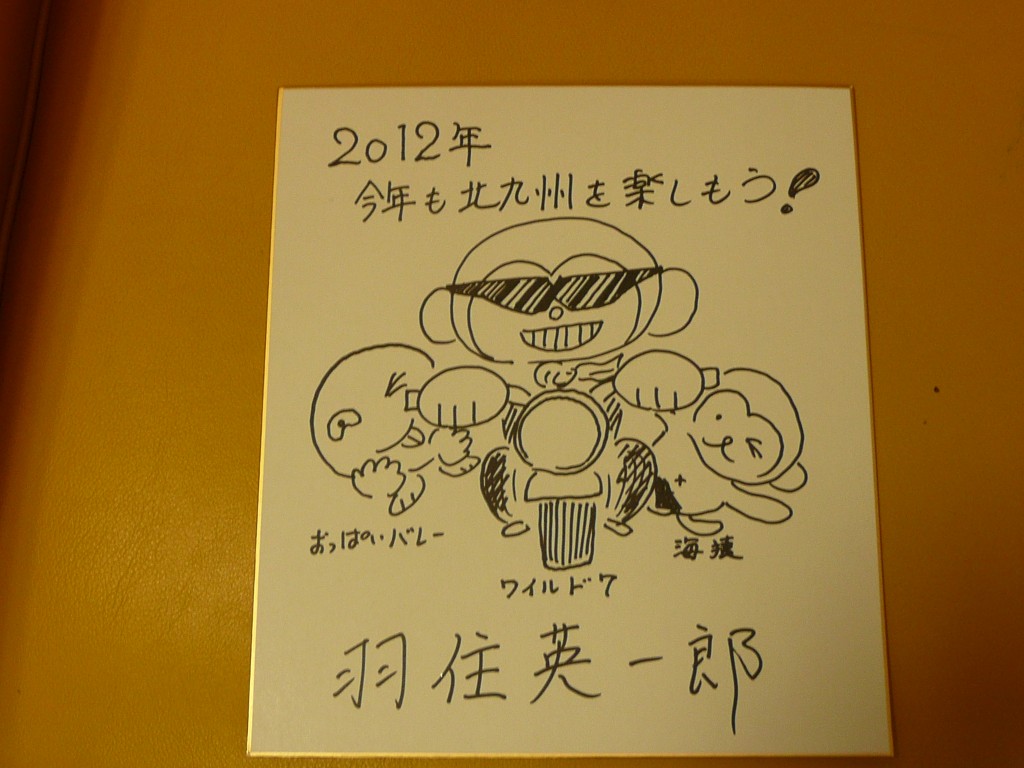 2012年
今年も北九州を楽しもう!
おっぱいバレー
海猿
ワイルド7
羽住英一郎